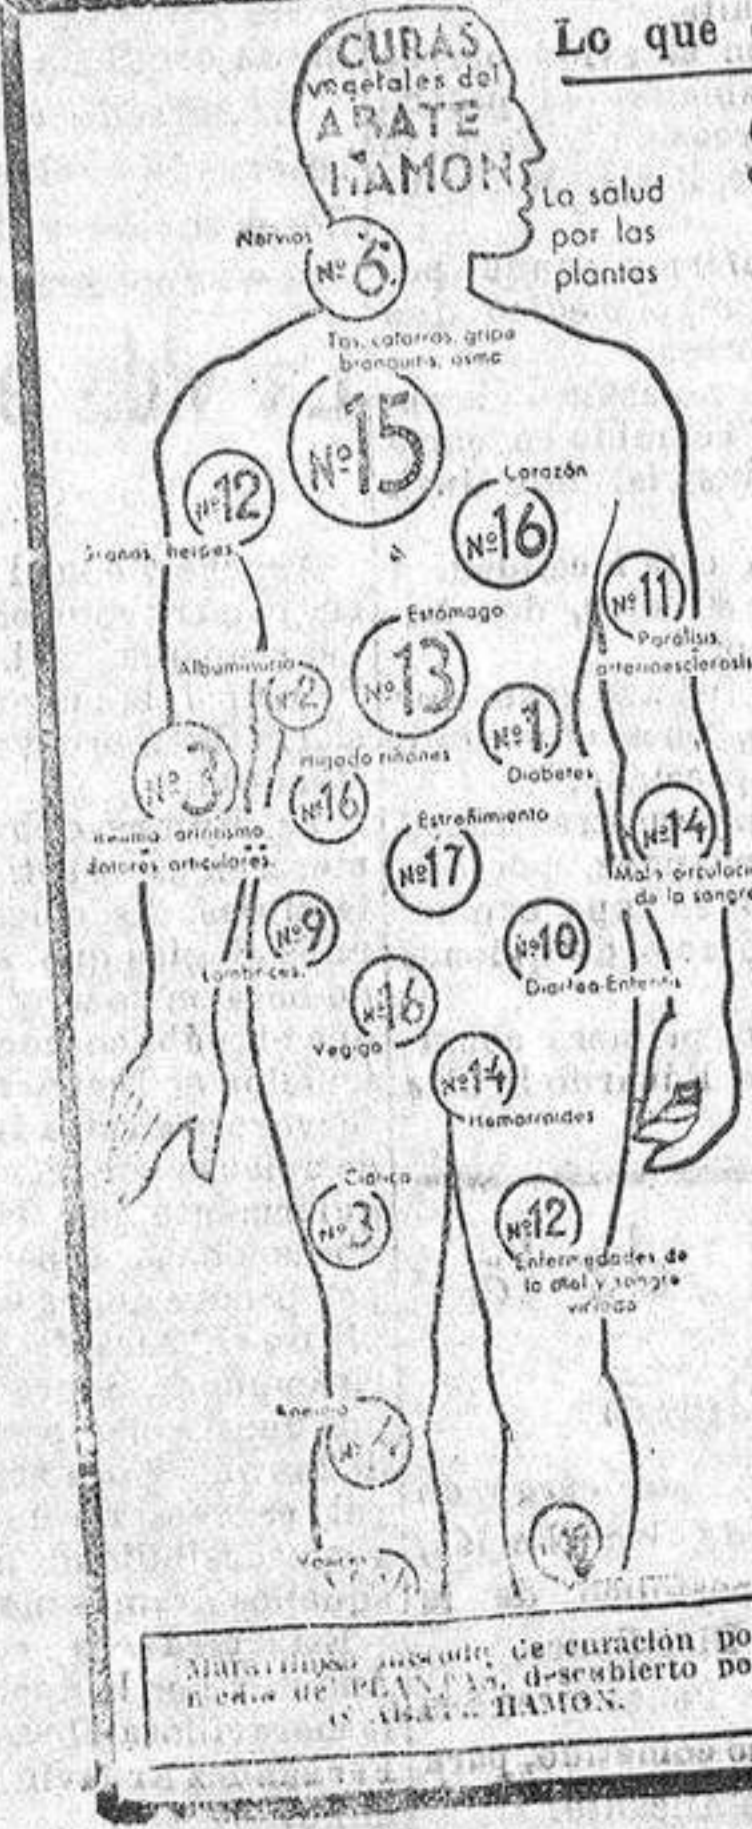 Lo que
CURAS
vegetales del
ABATE
HAMON
La salud
por las
plantas
Nervios
Nº 6
Tos, catarros, gripe
bronquitis, asma
Nº 15
Nº 12
Granos, herpes.
Corazón
Nº 16
Nº 11
Parálisis,
arterioesclerosis
Estómago
Nº 13
Albuminuria
Nº 2
Nº 1
Diabetes
Nº 3
Reuma, artritismo
dolores articulares.
Higado riñones
Nº 16
Estreñimiento
Nº 17
Nº 14
Mala circulació
de la sangre
Nº 9
Lombrices.
Nº 10
Diarrea-Enteritis
Nº 16
Vegiga
Nº 14
Hemorroides
Ciática
Nº 3
Nº 12
Enfermedades de
la piel y sangre
viciada
Anemia
Maravilloso método de curación po
medio de PLANTAS, descubierto po
el ABATE HAMON.